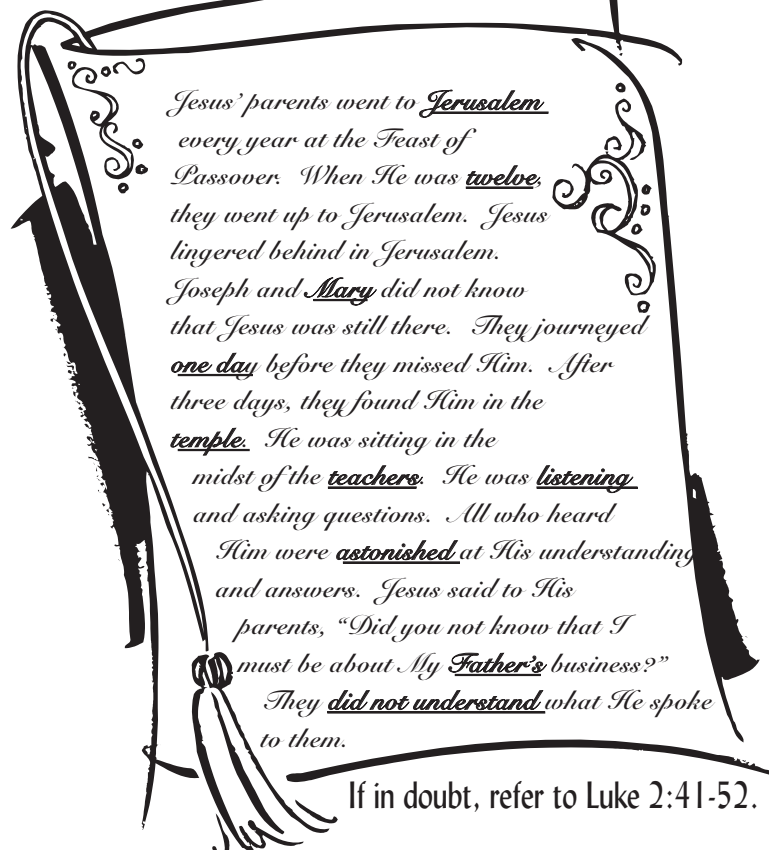 Jesus' parents went to Jerusalem
every year at the Feast of
Passover. When He was twelve,
they went up to Jerusalem. Jesus
lingered behind in Jerusalem.
Joseph and Mary did not know
that Jesus was still there. They journeyed
one day before they missed Him. After
three days, they found Him in the
temple. He was sitting in the
midst of the teachers. He was listening
and asking questions. All who heard
Him were astonished at His understanding
and answers. Jesus said to His
parents, “Did you not know that I
must be about My Father's business?”
They did not understand what He spoke
to them.
If in doubt, refer to Luke 2:41-52.